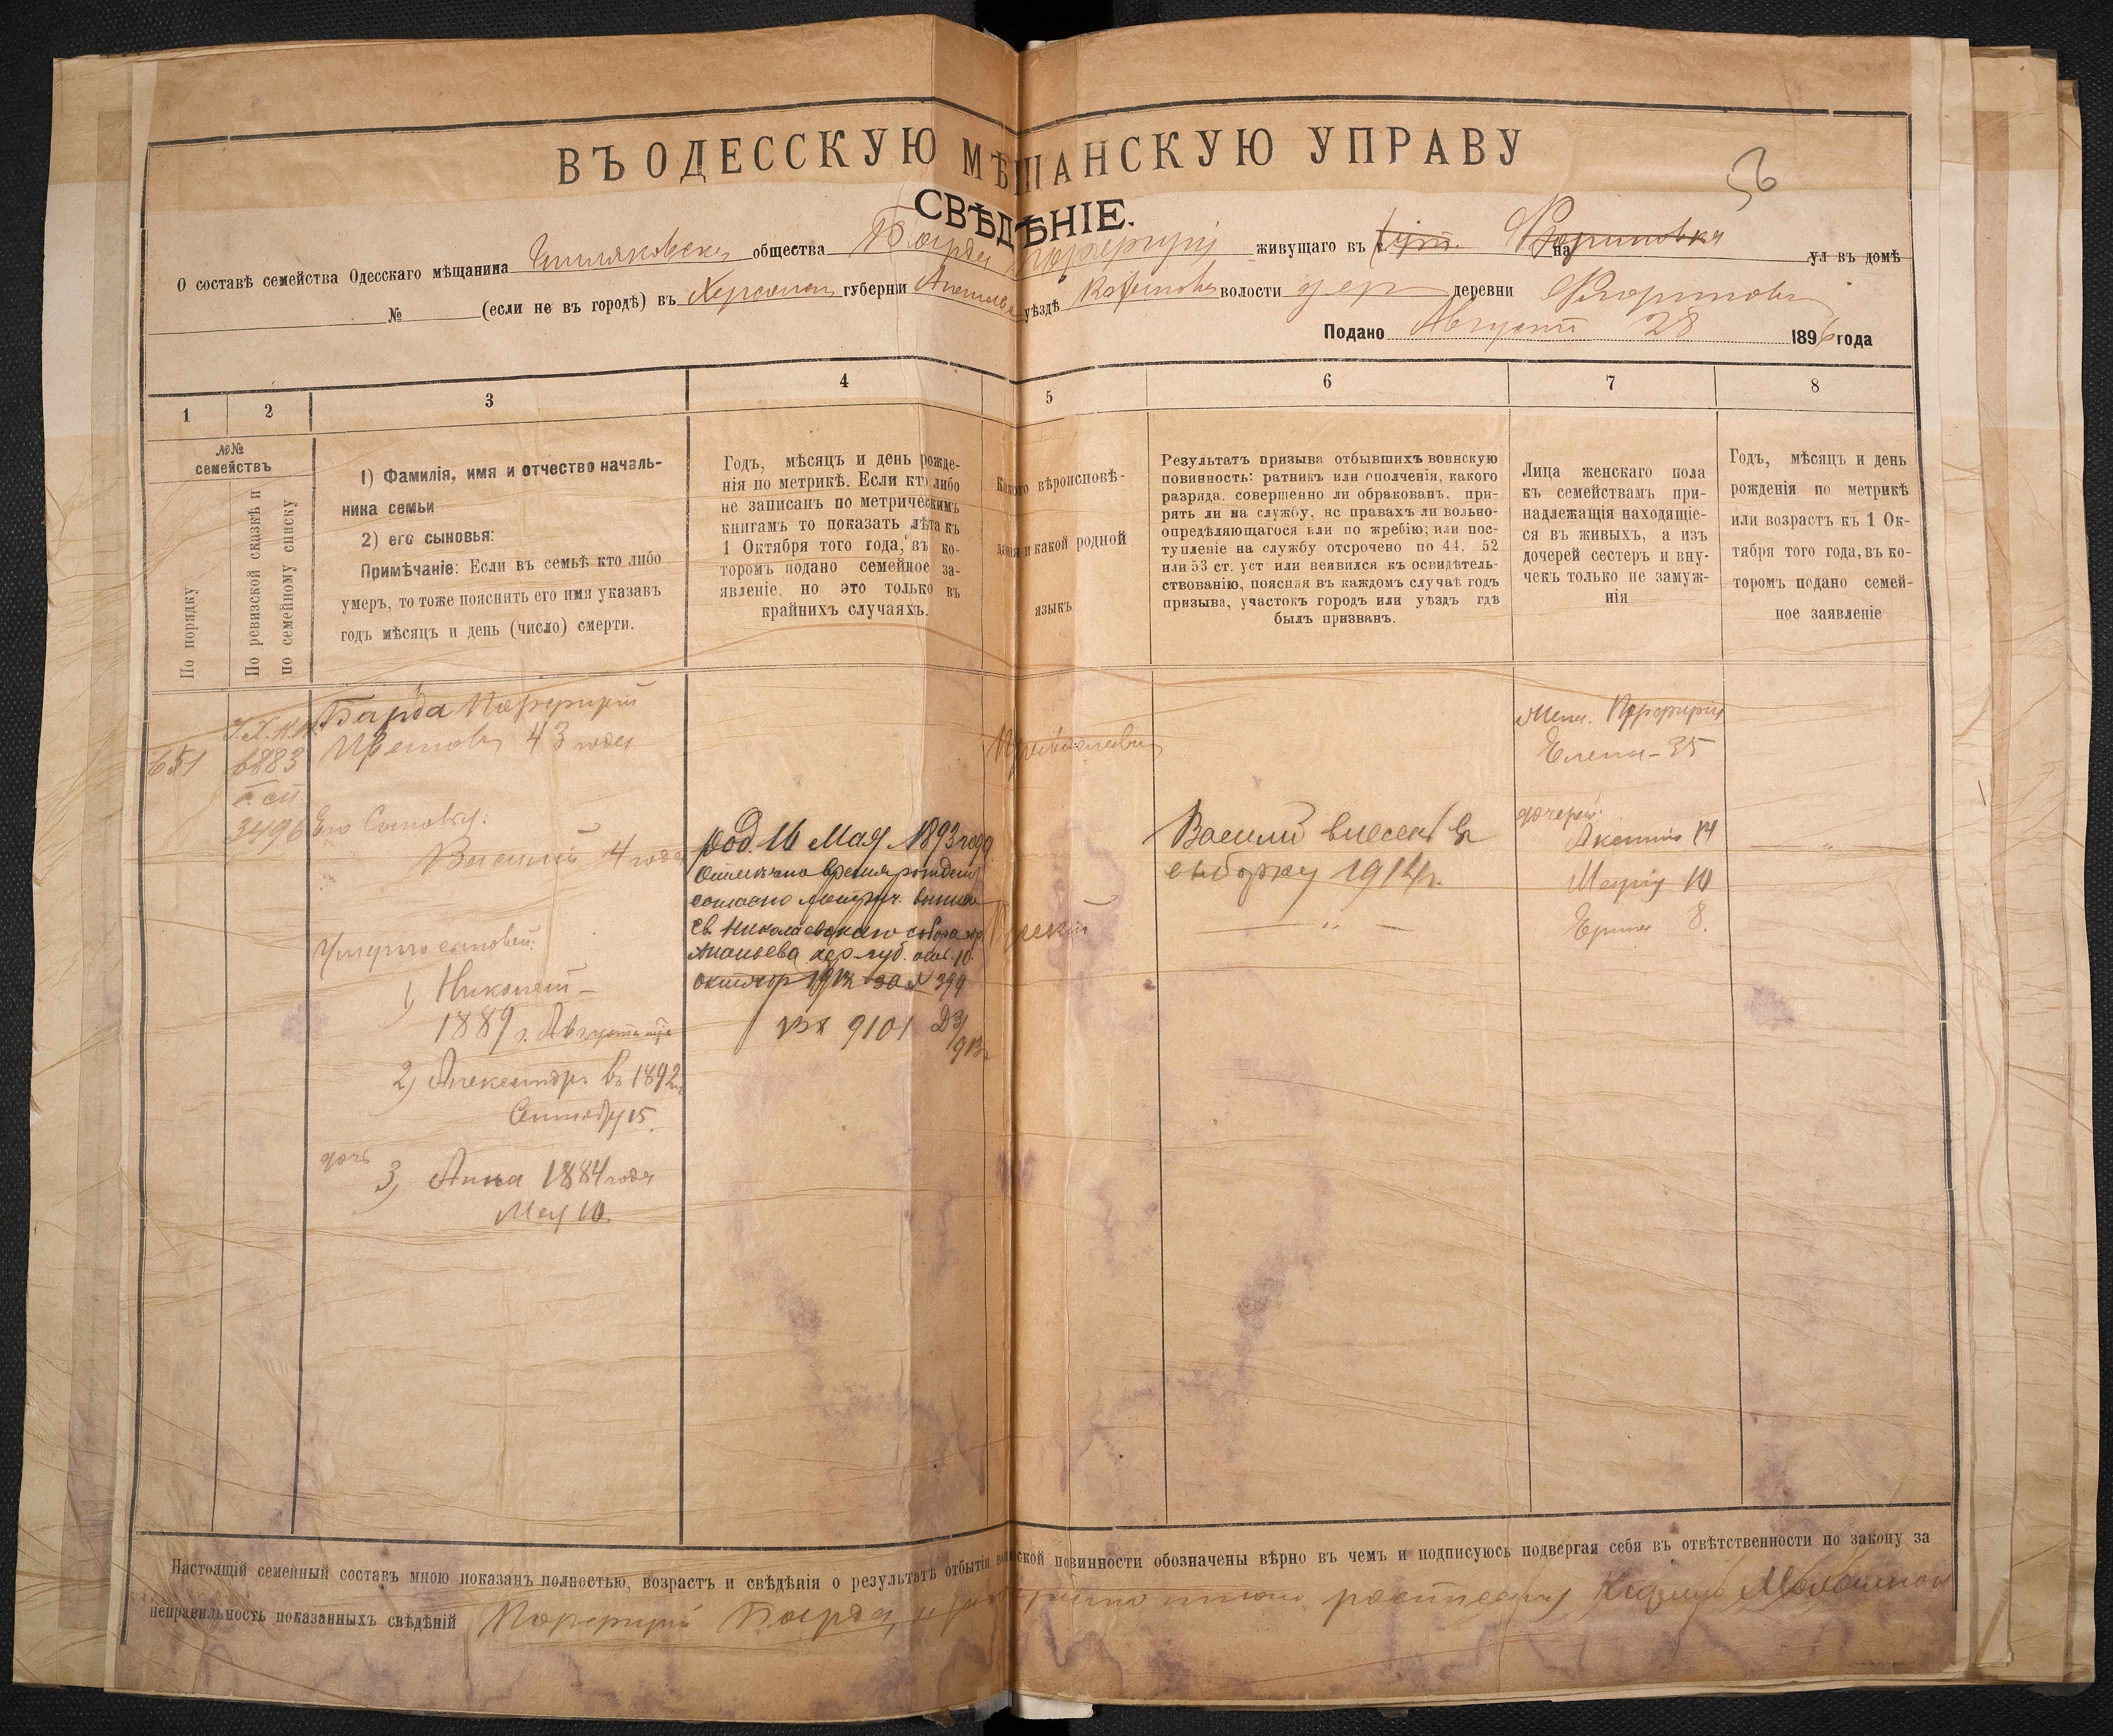 ВЪ ОДЕССКУЮ МѢЩАНСКУЮ УПРАВУ
56
СВѢДѢНІЕ.
О составѣ семейства Одесскаго мѣщанина общества Барда Порфирій живущаго въ г. на ул въ домѣ
№ (если не въ городѣ) въ Херсонск губерніи Ананьев уѣздѣ волости дер деревни
Подано Августа 28 1896 года
1 2 3 4 5 6 7 8
№№ семействъ
По порядку
По ревизской сказкѣ и
по семейному списку
1) Фамилія, имя и отчество началь-
ника семьи
2) его сыновья:
Примѣчаніе: Если въ семьѣ кто либо
умеръ, то тоже пояснить его имя указавъ
годъ мѣсяцъ и день (число) смерти.
Годъ, мѣсяцъ и день рожде-
нія по метрикѣ. Если кто либо
не записанъ по метрическимъ
книгамъ то показать лѣта къ
1 Октября того года, въ ко-
торомъ подано семейное за-
явленіе, но это только въ
крайнихъ случаяхъ.
Какого вѣроисповѣ-
данія и какой родной
языкъ
Результатъ призыва отбывшихъ воинскую
повинность: ратникъ или ополченія, какого
разряда, совершенно ли обракованъ, при-
рять ли на службу, нс правахъ ли вольно-
опредѣляющагося или по жребію; или пос-
тупленіе на службу отсрочено по 44, 52
или 53 ст. уст или неявился къ освидѣтель-
ствованію, поясняя въ каждомъ случаѣ годъ
призыва, участокъ городъ или уѣздъ гдѣ
былъ призванъ.
Лица женскаго пола
къ семействамъ при-
надлежащія находящіе-
ся въ живыхъ, а изъ
дочерей сестеръ и вну-
чекъ только не замуж-
нія
Годъ, мѣсяцъ и день
рожденія по метрикѣ
или возрастъ къ 1 Ок-
тября того года, въ ко-
торомъ подано семей-
ное заявленіе
651
6883
3496
Барда Порфирій
Ивановъ 43 года
Его Сыновья:
Василій 4 года
Умерло сыновей:
1) Николай
1889 г. Августа
2) Александръ въ 1892 г.
Сентябр 15.
дочь
3) Анна 1884 года
Мая 10
род. 16 Мая 1893 года
время рожденія
согласно метрич. выписи
св. Николаевскаго собора гор
Ананьева Хер. губ. отъ 10
октябр за № 399
Вх 9101
913 г
Православный
Русскій
Василій внесенъ въ
выборку 1914 г.
Жена Порфирія
Елена - 35
дочерей:
Аксинія 14
Марія 10
8.
Настоящій семейный составъ мною показанъ полностью, возрастъ и свѣдѣнія о результатѣ отбытія воинской повинности обозначены вѣрно въ чемъ и подписуюсь подвергая себя въ отвѣтственности по закону за
неправильность показанныхъ свѣдѣній Порфирій Барда